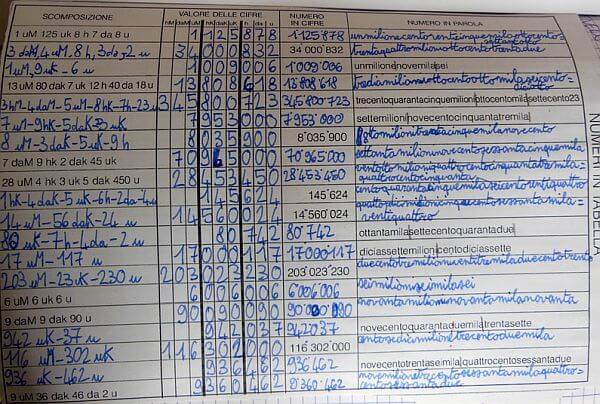 SCOMPOSIZIONE VALORE DELLE CIFRE NUMERO IN CIFRE NUMERO IN PAROLA
hM daM uM hk dak uk h da u
1 uM 125 uk 8 h 7 da 8 u 1 1 2 5 8 7 8 1'125'878 unmilionecentoventicinquemilaottocento=
settantotto
3 daM, 4 uM, 8 h, 3 da, 2 u 3 4 0 0 0 8 3 2 34 000'832 trentaquattromilioniottocentotrentadue
1 uM, 9 uK - 6 u 1 0 0 9 0 0 6 1'009'006 unmilionenovemilasei
13 uM 80 dak 7 uk 12 h 40 da 18 u 1 3 8 0 8 6 1 8 13'808'618 tredicimilioniottocentoottomilaseicento=
diciotto
3 hM - 4 daM - 5 uM - 8 hK - 7h - 23 u 3 4 5 8 0 0 7 2 3 345'800'723 trecentoquarantacinquemilioniottocentomilasettecento23
7 uM - 9 hK - 5 dak - 3 uk 7 9 5 3 0 0 0 7'953'000 settemilioninovecentocinquantatremila
8 uM - 3 dak - 5 uK - 9 h 8 0 3 5 9 0 0 8'035'900 ottomilionitrentacinquemilanovecento
7 daM 9 hk 2 dak 45 uk 7 0 9 6 5 0 0 0 70'965'000 settantamilioninovecentosessantacinquemila
28 uM 4 hk 3 uk 5 dak 450 u 2 8 4 5 3 4 5 0 28'453'450 ventottomilioniquattrocentocinquantatremila=
quattrocentocinquanta
1 hK - 4 dak - 5 uk - 6h - 2da - 4u 1 4 5 6 2 4 145'624 centoquarantacinquemilaseicentoventiquattro
14 uM - 56 dak - 24 u 1 4 5 6 0 0 2 4 14'560'024 quattordicimilionicinquecentosessantamila=
ventiquattro
80 uk - 7 h - 4 da - 2 u 8 0 7 4 2 80'742 ottantamilasettecentoquarantadue
17 uM - 117 u 1 7 0 0 0 1 1 7 17'000'117 diciassettemilionicentodiciassette
203 uM - 23 uK - 230 u 2 0 3 0 2 3 2 3 0 203'023'230 duecentotremilioniventitremiladuecentotrenta
6 uM 6 uk 6 u 6 0 0 6 0 0 6 6'006'006 seimilioniseimilasei
9 daM 9 dak 90 u 9 0 0 9 0 0 9 0 90'090'090 novantamilioninovantamilanovanta
942 uK - 37 u 9 4 2 0 3 7 942'037 novecentoquarantaduemilatrentasette
116 uM - 302 uK 1 1 6 3 0 2 0 0 0 116'302'000 centosedicimilionitrecentoduemila
936 uK - 462 u 9 3 6 4 6 2 936'462 novecentotrentaseimilaquattrocentosessantadue
9 uM 36 dak 46 da 2 u 9 3 6 0 4 6 2 9'360'462 novemilionitrecentosessantamilaquattro=
centosessantadue
NUMERI IN TABELLA